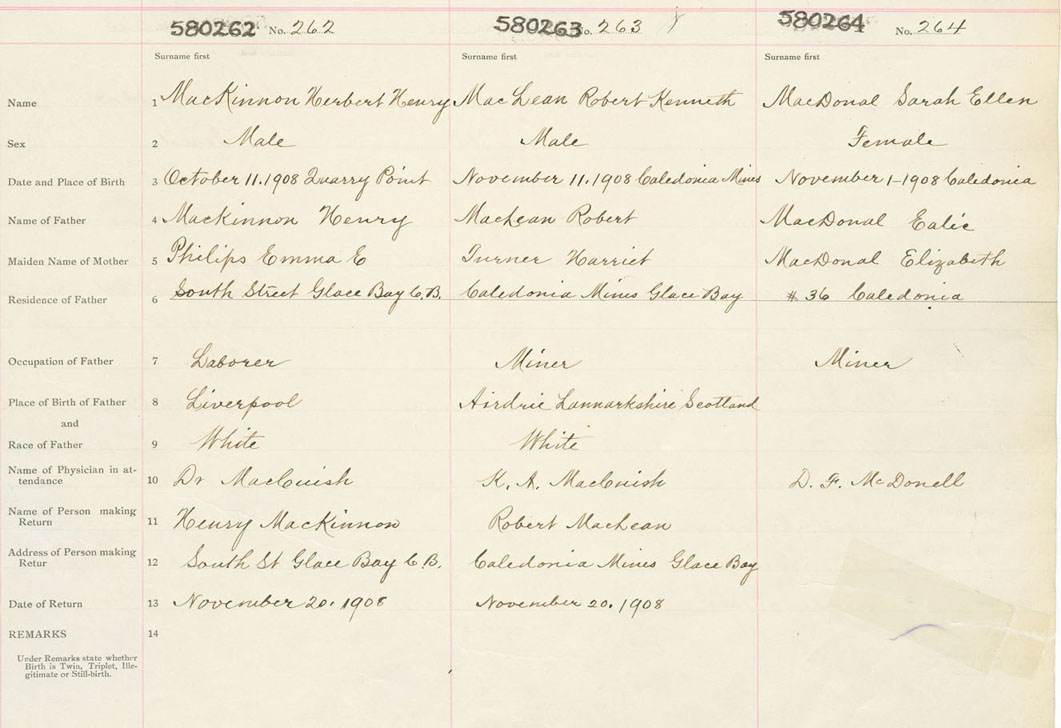 580262 No. 262 580263 No. 263 580264 No. 264
Surname first Surname first Surname first
Name 1 MacKinnon Herbert Henry MacLean Robert Kenneth MacDonal Sarah Ellen
Sex 2 Male Male Female
Date and Place of Birth 3 October 11.1908 Quarry Point November 11.1908 Caledonia Mines November 1-1908 Caledonia
Name of Father 4 MacKinnon Henry MacLean Robert MacDonal
Maiden Name of Mother 5 Philips Emma E Turner Harriet MacDonal Elizabeth
Residence of Father 6 South Street Glace Bay C.B. Caledonia Mines Glace Bay # 36 Caledonia
Occupation of Father 7 Laborer Miner Miner
Place of Birth of Father 8 Liverpool Airdrie Lannarkshire Scotland
and
Race of Father 9 White White
Name of Physician in at-
tendance 10 Dr MacCuish K. A. MacCuish D. F. McDonell
Name of Person making
Return 11 Henry MacKinnon Robert MacLean
Address of Person making
Retur 12 South St Glace Bay C.B. Caledonia Mines Glace Bay
Date of Return 13 November 20. 1908 November 20. 1908
REMARKS 14
Under Remarks state whether
Birth is Twin, Triplet, Ille-
gitimate or Still-birth.